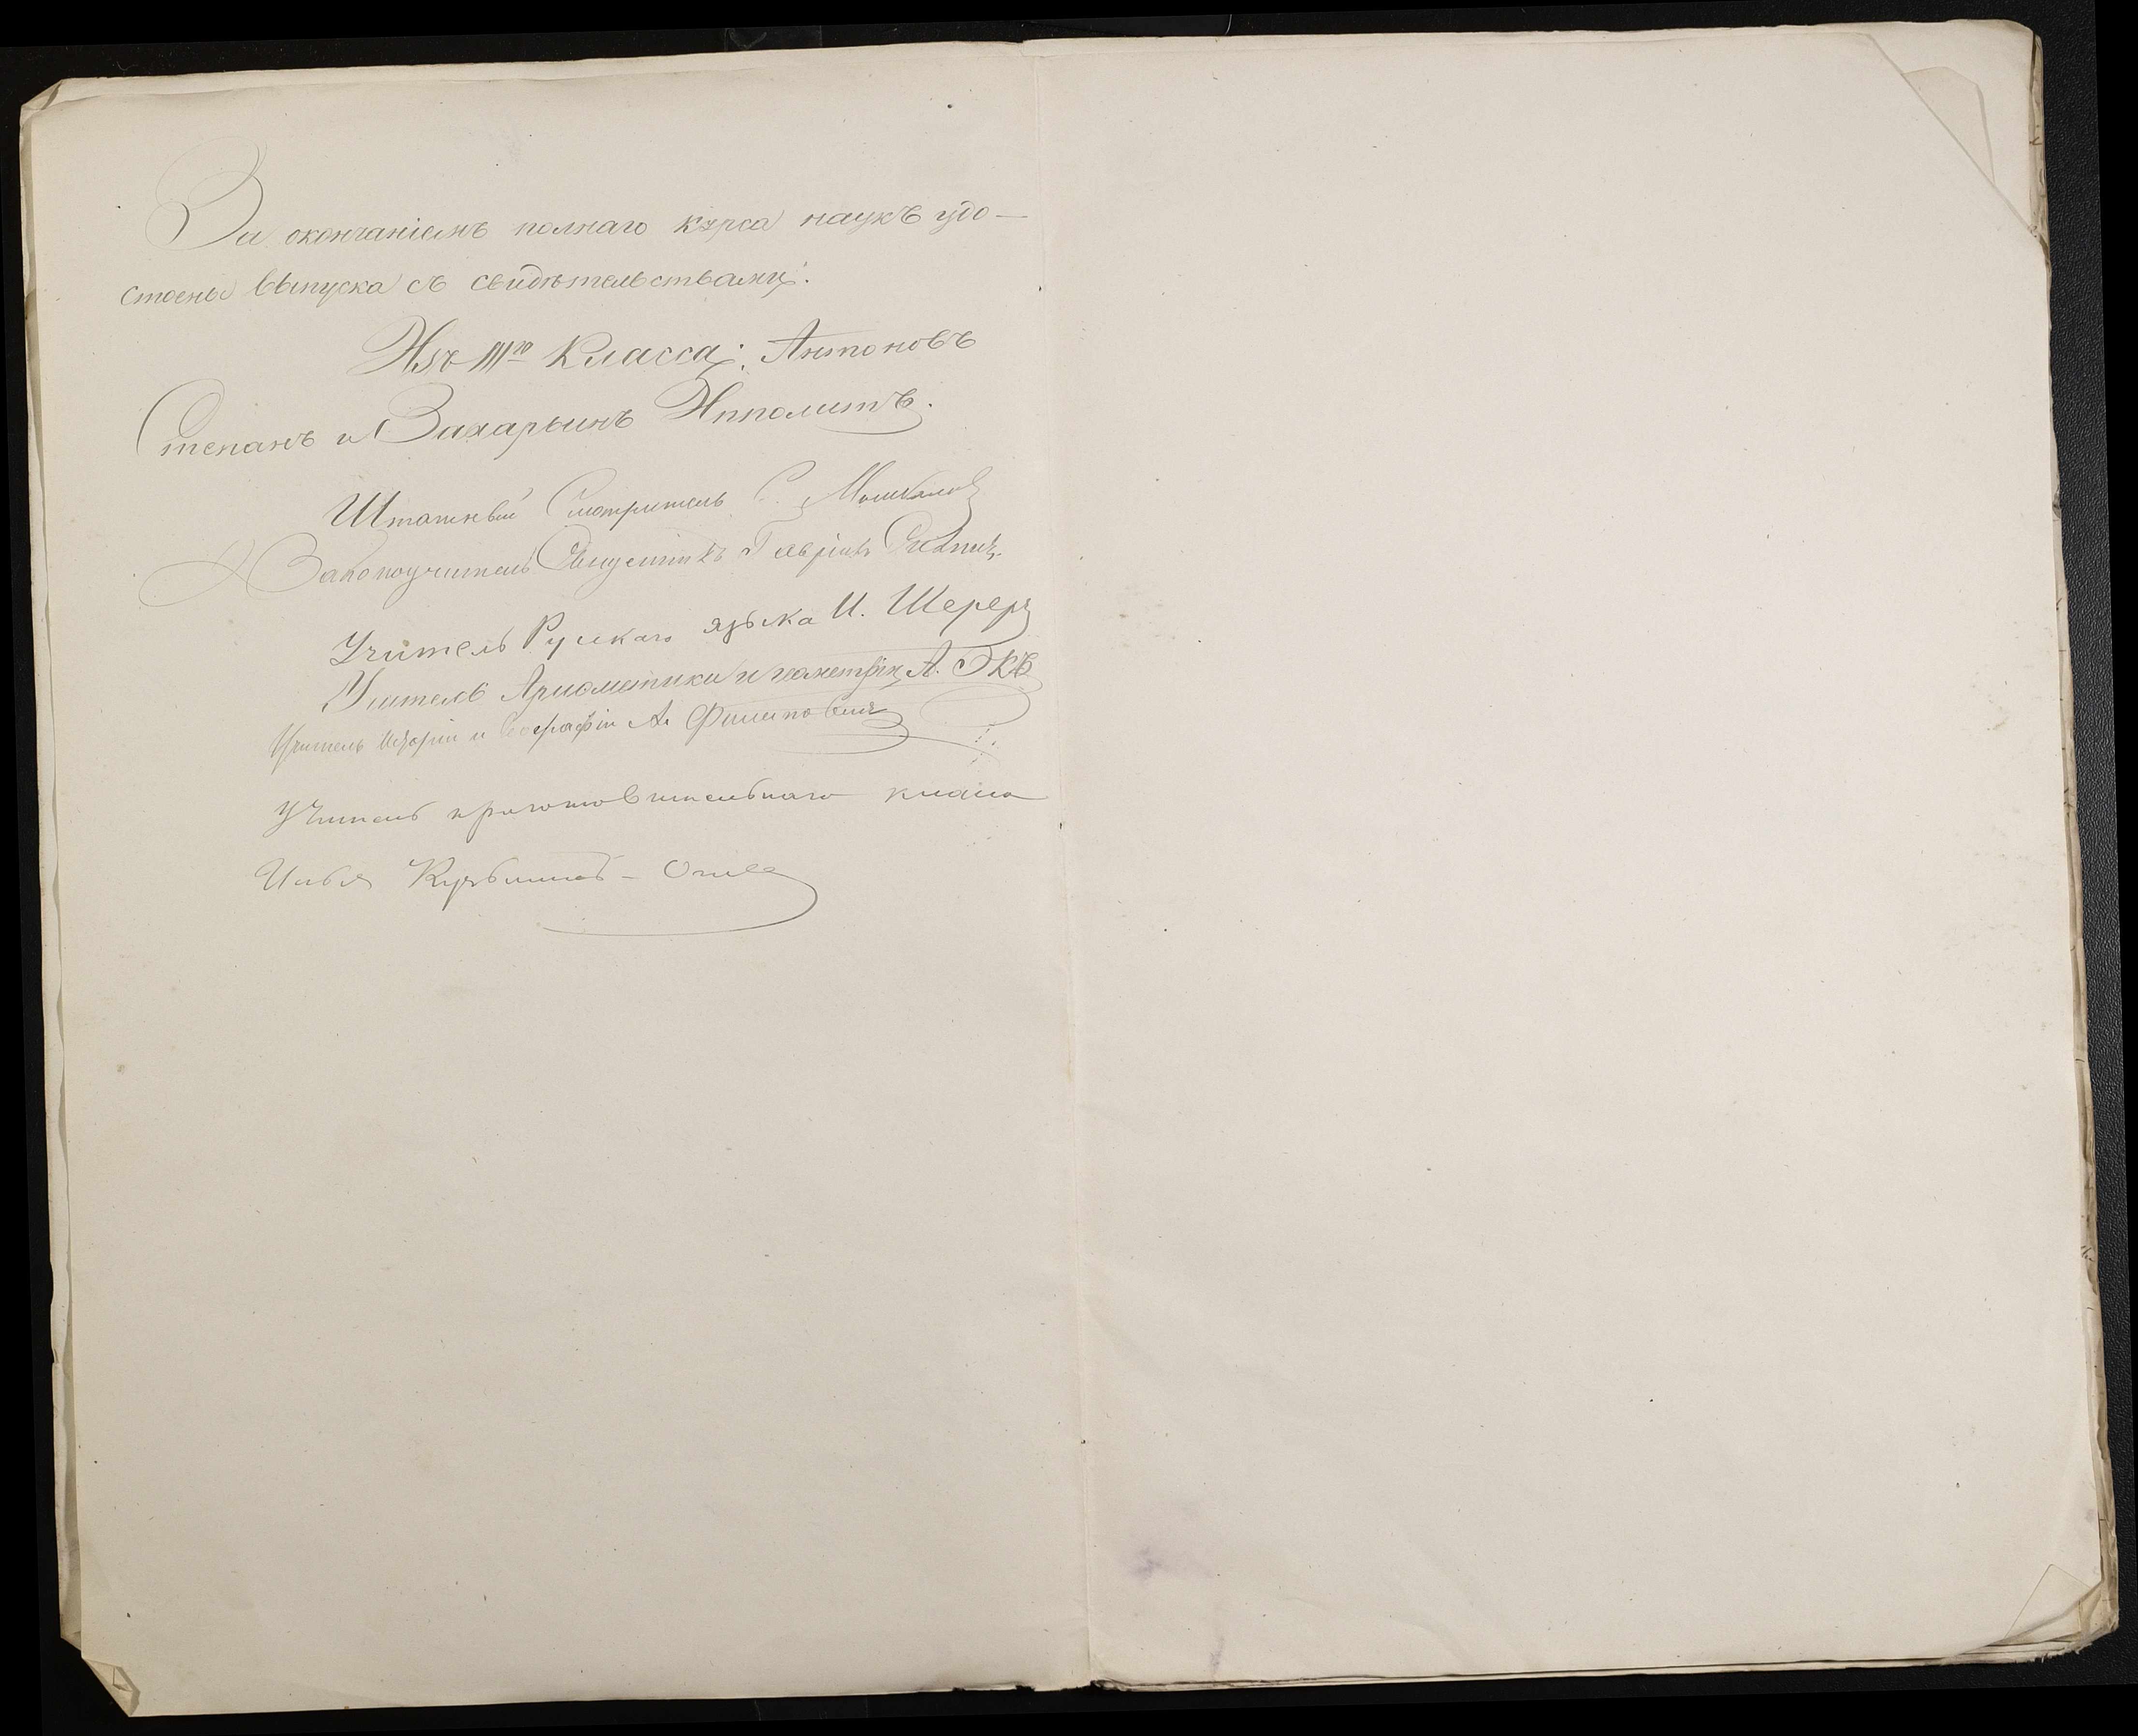 За окончаніемъ полнаго курса наукъ удо-
стоены выпуска съ свидѣтельствами:
Изъ III го Класса: Антоновъ
Степанъ и Захарьинъ Ипполитъ.
Штатный Смотритель С.
Законоучитель Священникъ Гавріилъ
Учитель Русскаго языка И. Шереръ
Учитель Ариѳметики и геометріи А. Экъ
Учитель Исторіи и Географіи А. Филиповичъ
Учитель приготовительнаго класса
Илья